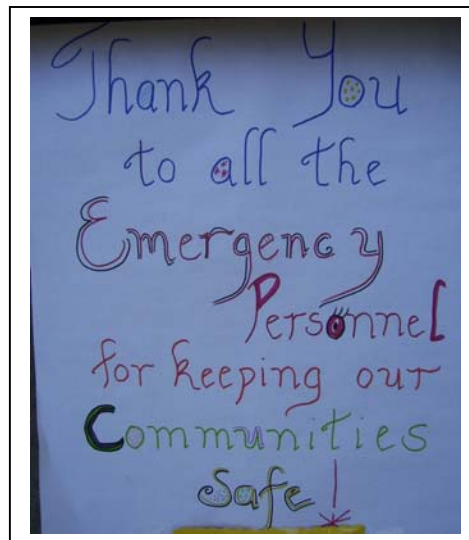 Thank You
to all the
Emergency
Personnel
for keeping our
Communities
Safe!